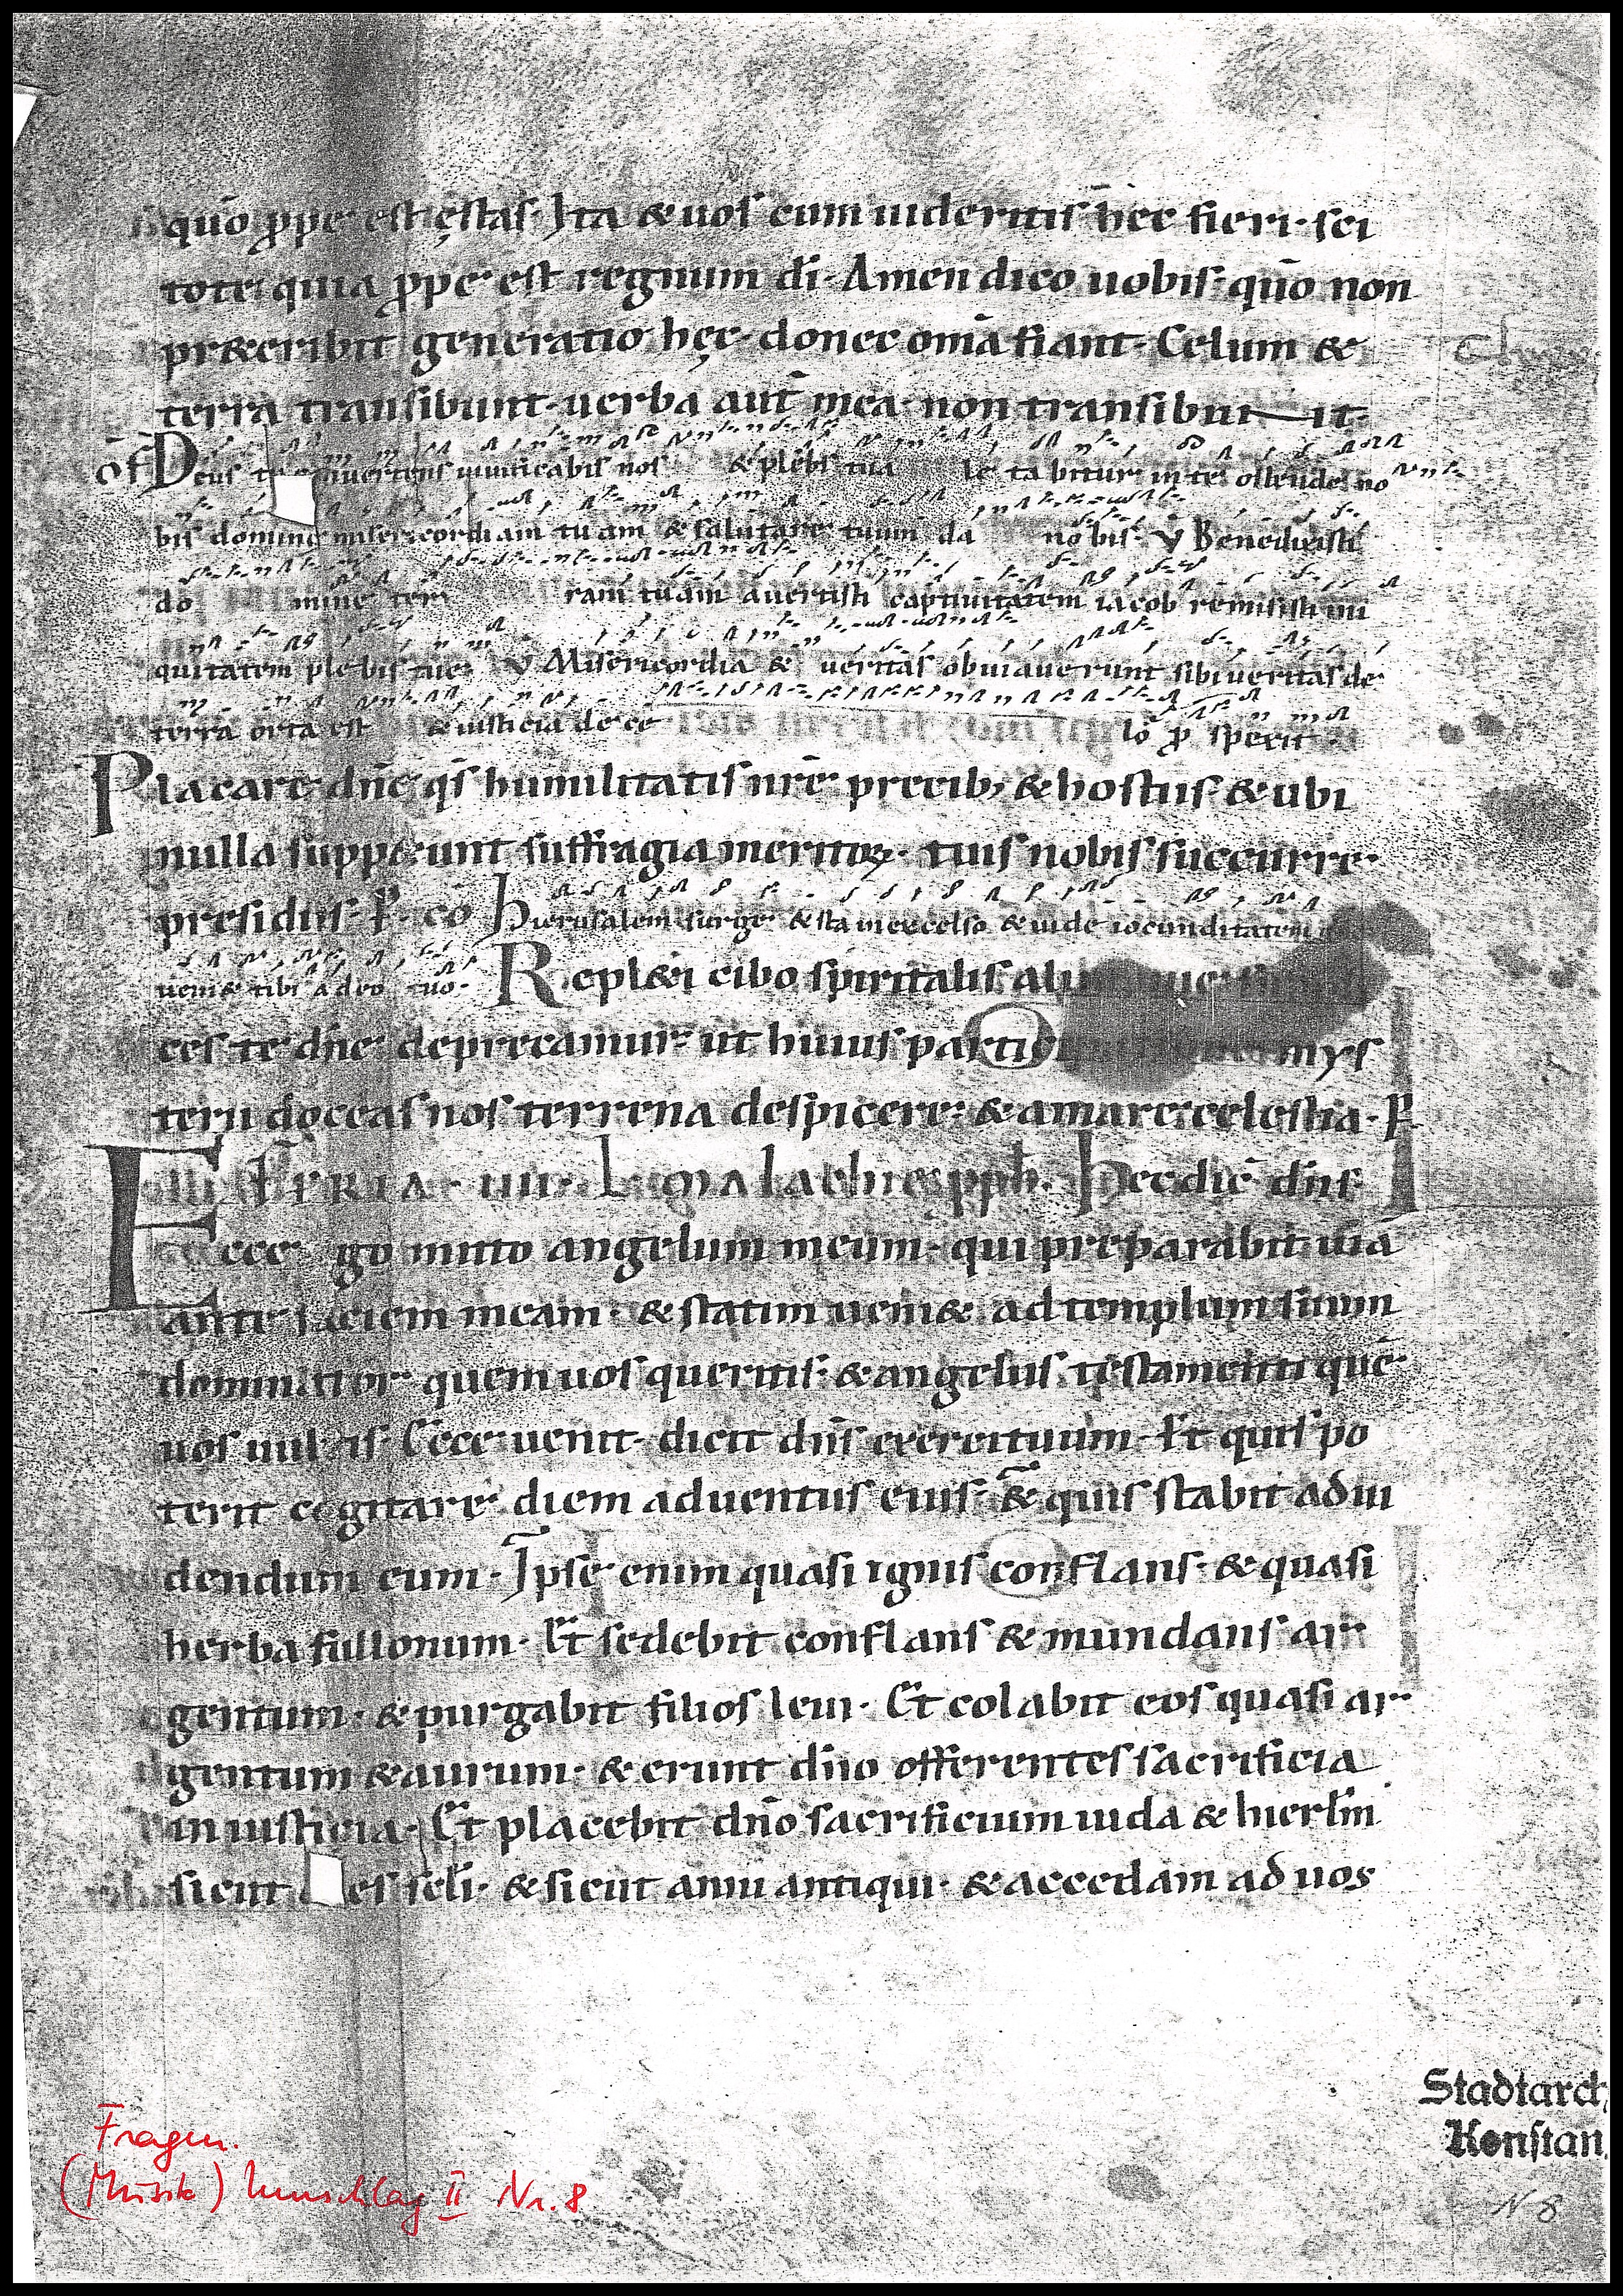 quō ꝓpe est ęstas· Ita & uos cum uideritis hęc fieri· sci
tote quia ꝓpe est regnum dī· Amen dico uobis· quō non
pr&eribit generatio hęc· donec om̄ia fiant· Celum &
terra transibunt· uerba aut̄ mea· non transibunt·
of Deus tu conuertens uiuificabis nos & plebs tua le ta bitur in te ostende no
bis domine misericordiam tuam & salutare tuum da nobis· V Benedixisti
do mine ter ram tuam auertisti captiuitatem iacob remisisti ini
quitatem ple bis tue V Misericordia & ueritas obuiauerunt sibi ueritas de
terra orta est & iusticia de ce lo ꝓ spexit·
Placare dn̄e qs̄ humilitatis nr̄e precib; & hostiis· & ubi
nulla suppetunt suffragia meritoꝝ· tuis nobis succurre
presidiis· P· cō Hierusalem surge & sta in excelso & uide iocunditatem
ueni& tibi a deo tuo· Repl&i cibo spiritalis ali
ces te dn̄e deprecamur· ut huius parti mys
terii doceas nos terrena despicere· & amare celestia· P
FERIA· IIII· L· malachie pph̄· Hec dic̄ dn̄s
Ecce ego mitto angelum meum· qui preparabit uiā
ante faciem meam· & statim ueni& ad templum suum
dominator quem uos queritis· & angelus testamenti quē
uos uultis· Ecce uenit· dicit dn̄s exercituum· Et quis po
terit cogitare diem aduentus eius· & quis stabit ad ui
dendum eum· Ipse enim quasi ignis conflans· & quasi
herba fullonum· Et sedebit conflans & mundans ar
gentum· & purgabit filios leui· Et colabit eos quasi ar
gentum & aurum· & erunt dn̄o offerentes sacrificia
in iusticia· Et placebit dn̄o sacrificium iuda & hierl̄m
sicut es sc̄li· & sicut anni antiqui· & accedam ad uos
Fragm.
(Musik) Umschlag II Nr. 8
Stadtarch
Konstan
N 8